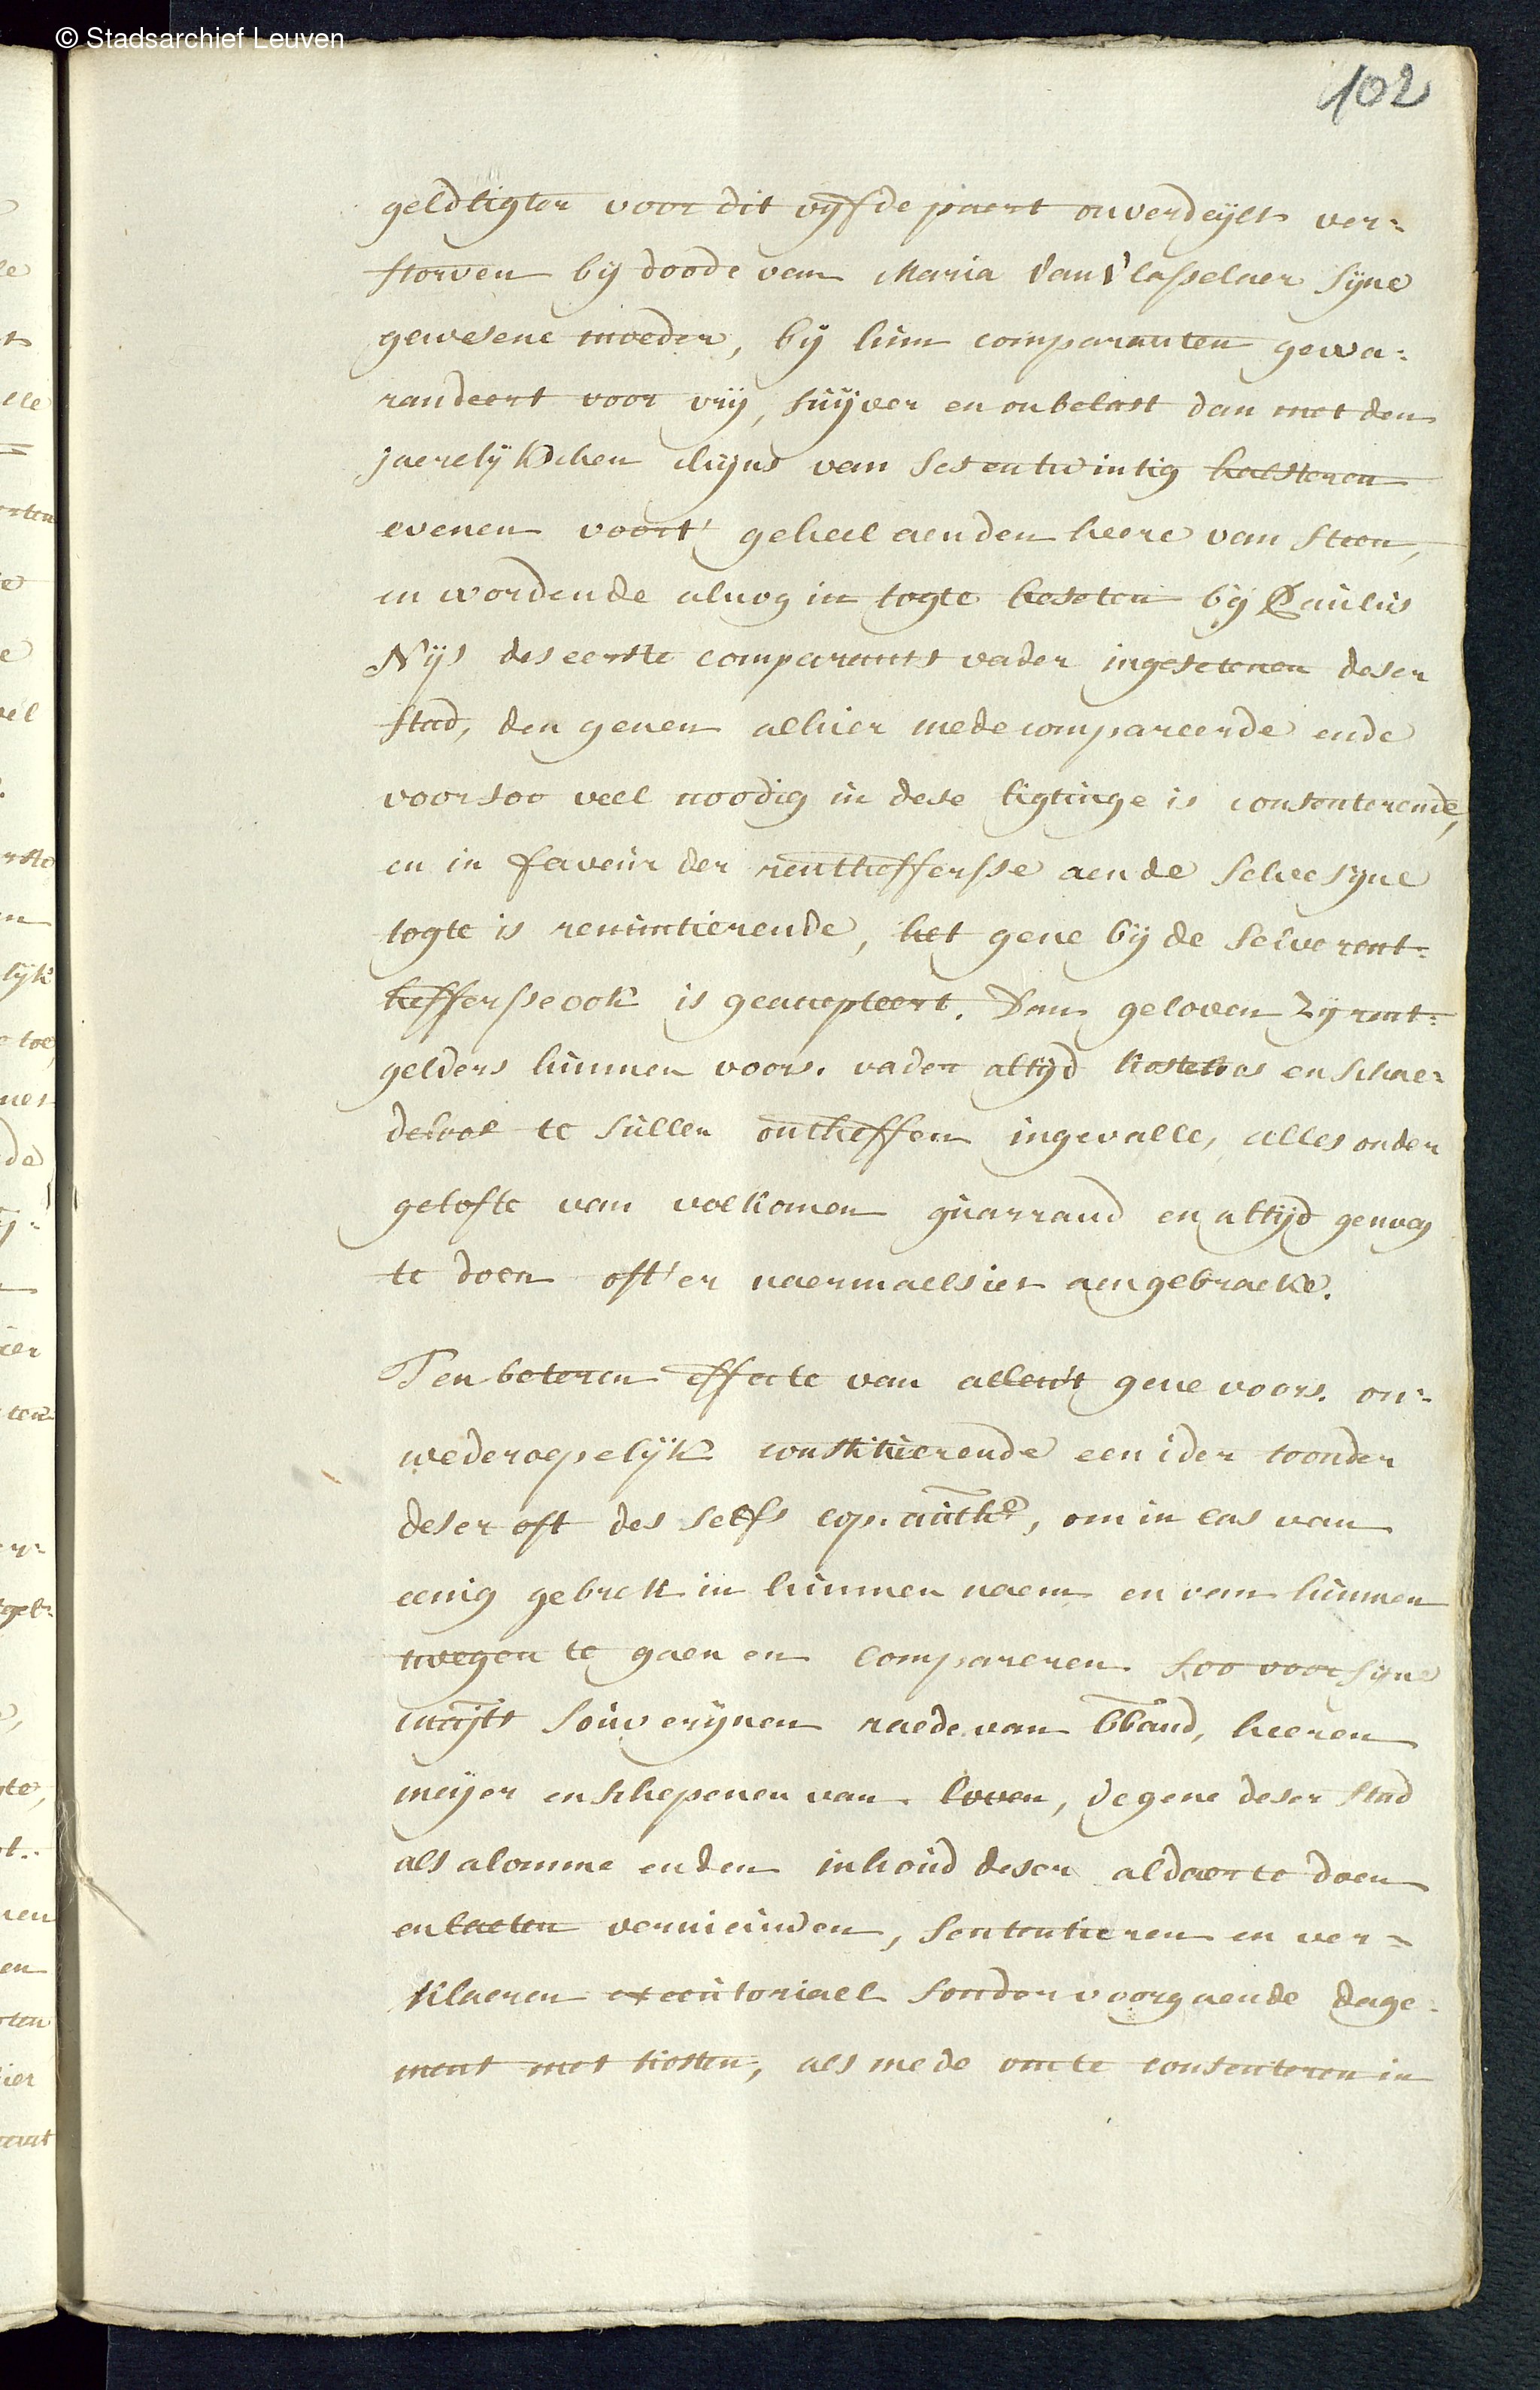 © Stadsarchief Leuven
102
geldligter voor dit vyfde paert onverdeylt ver=
storven bij doode van Maria Van Vlasselaer sijne
gewesene moeder, bij hun comparanten gewa=
randeert voor vrij, suijver en onbelast dan met den
jaerelijkschen chijns van sesentwintig halsteren
evenen voort' geheel aen den heere van Steen,
en wordende alnog in togte beseten bij Paulus
Nijs des eerste comparants vader ingesetenen deser
stad, den genen alhier mede compareerde ende
voor soo veel noodig in dese ligtinge is consenterende,
en in faveur der rentheffersse aen de selve sijne
togte is renuntierende, het gene bij de selve rent=
heffersse ook is geaccepteert. Dan geloven zij rent=
gelders hunnen voors. vader altijd kosteloos en schae=
deloos te sullen ontheffen ingevalle, alles onder
gelofte van volkomen guarrand en altijd genoeg
te doen oft'er naermaels iet aengebraeke.
Ten beteren effecte van allen't gene voors. on=
wederoepelijk constituerende een ider toonder
deser oft des selfs cop. auth:, om in cas van
eenig gebrek in hunnen naem en van hunnen
twegen te gaen en compareren soo voor sijne
maj:ts souverijnen raede van bband, heeren
meijer en schepenen van loven, de gene deser stad
als alomme en den inhoud deser aldaer te doen
en laeten vernieuwen, sententieren en ver=
klaeren executoriael sonder voorgaende dage=
ment met kosten, als mede om te consenteren in